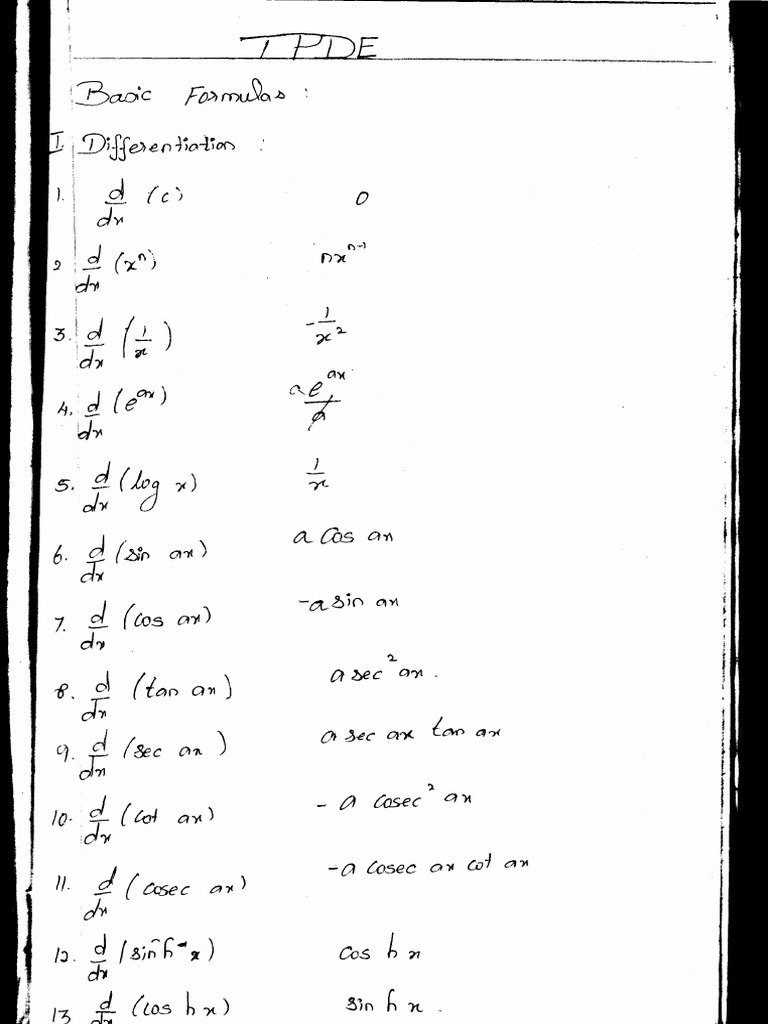 TPDE
Basic Formulas :
I. Differentiation :
1. d/dx (c) 0
2 d/dx (xⁿ) nxⁿ⁻¹
3. d/dx (1/x) -1/x²
4. d/dx (e^ax) a e^ax
5. d/dx (log x) 1/x
6. d/dx (sin ax) a cos ax
7. d/dx (cos ax) -a sin ax
8. d/dx (tan ax) a sec² ax.
9. d/dx (sec ax) a sec ax tan ax
10. d/dx (cot ax) - a cosec² ax
11. d/dx (cosec ax) -a cosec ax cot ax
12. d/dx (sin h x) cos h x
13. d/dx (cos h x) sin h x.